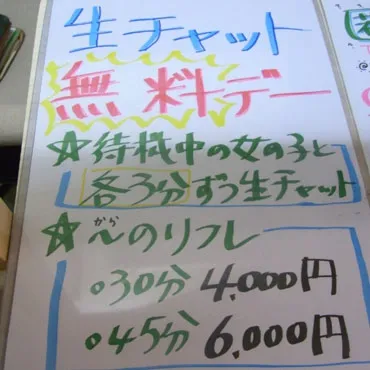 生チャット
無料デー
☆待機中の女の子と
各3分ずつ生チャット
☆〜のリフレ
から
○30分 4,000円
○45分 6,000円